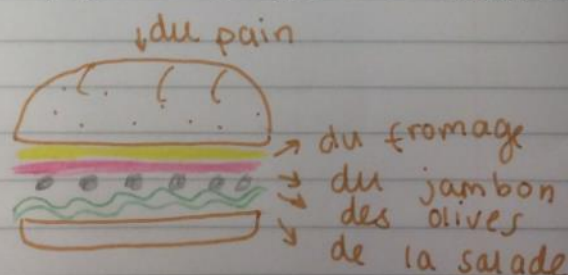 du pain
du fromage
du jambon
des olives
de la salade